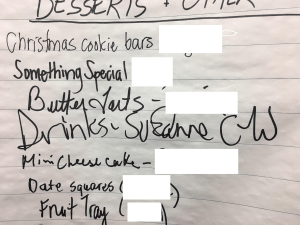 DESSERTS + OTHER
Christmas cookie bars
Something Special
Butter Tarts -
Drinks - Suzanne C-W
Mini Cheesecake -
Date squares (
Fruit Tray ( )